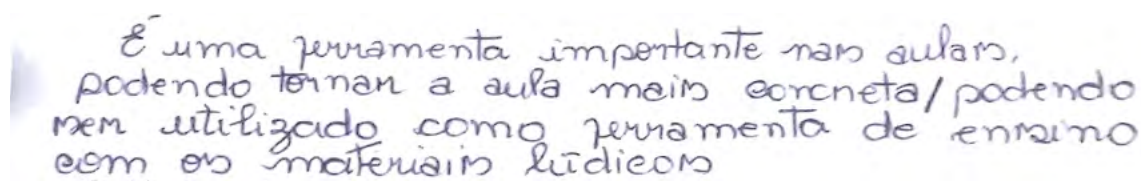 É uma ferramenta importante nas aulas,
podendo tornar a aula mais corcreta/podendo
ser utilizado como ferramenta de ensino
com os materiais lúdicos